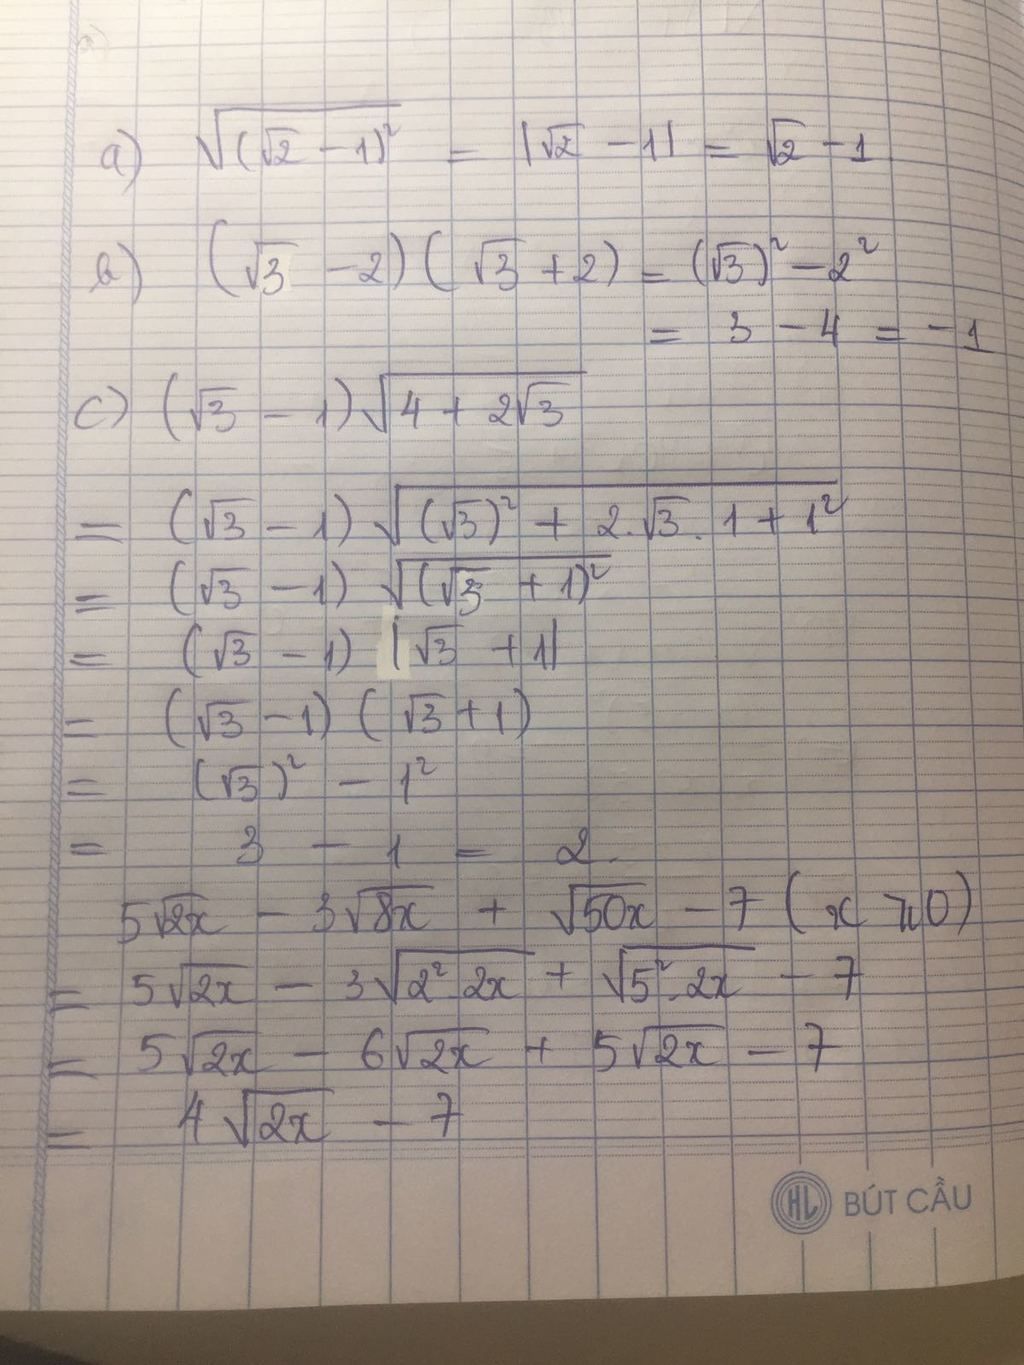 a) √(√2 − 1)² = |√2 − 1| = √2 − 1
b) (√3 − 2)(√3 + 2) = (√3)² − 2²
= 3 − 4 = −1
c) (√3 − 1)√4 + 2√3
= (√3 − 1) √(√3)² + 2.√3. 1 + 1²
= (√3 − 1) √(√3 + 1)²
= (√3 − 1) |√3 + 1|
= (√3 − 1) (√3 + 1)
= (√3)² − 1²
= 3 − 1 = 2.
5√2x − 3√8x + √50x − 7 (x ≥ 0)
= 5√2x − 3√2².2x + √5².2x − 7
= 5√2x − 6√2x + 5√2x − 7
= 4√2x − 7
HL BÚT CẦU